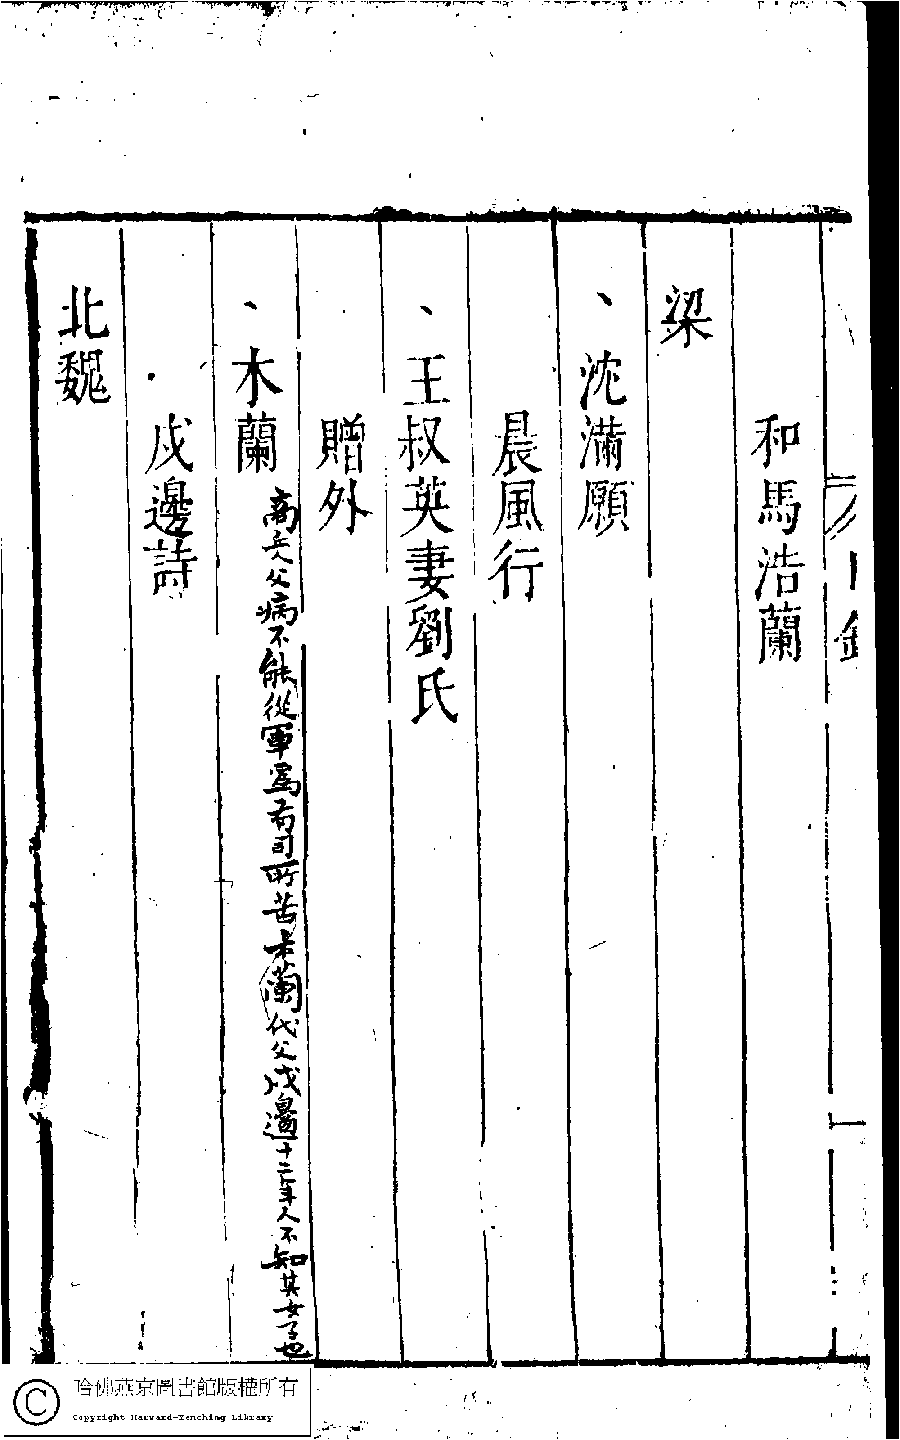 和馬浩蘭
梁
、沈滿願
晨風行
、王叔英妻劉氏
贈外
、木蘭 高丘人父病不能從軍爲有司所苦木蘭代父戍邊十二年人不知其女子也
戍邊詩
北魏
哈佛燕京圖書館版權所有
Copyright Harvard-Yenching Library